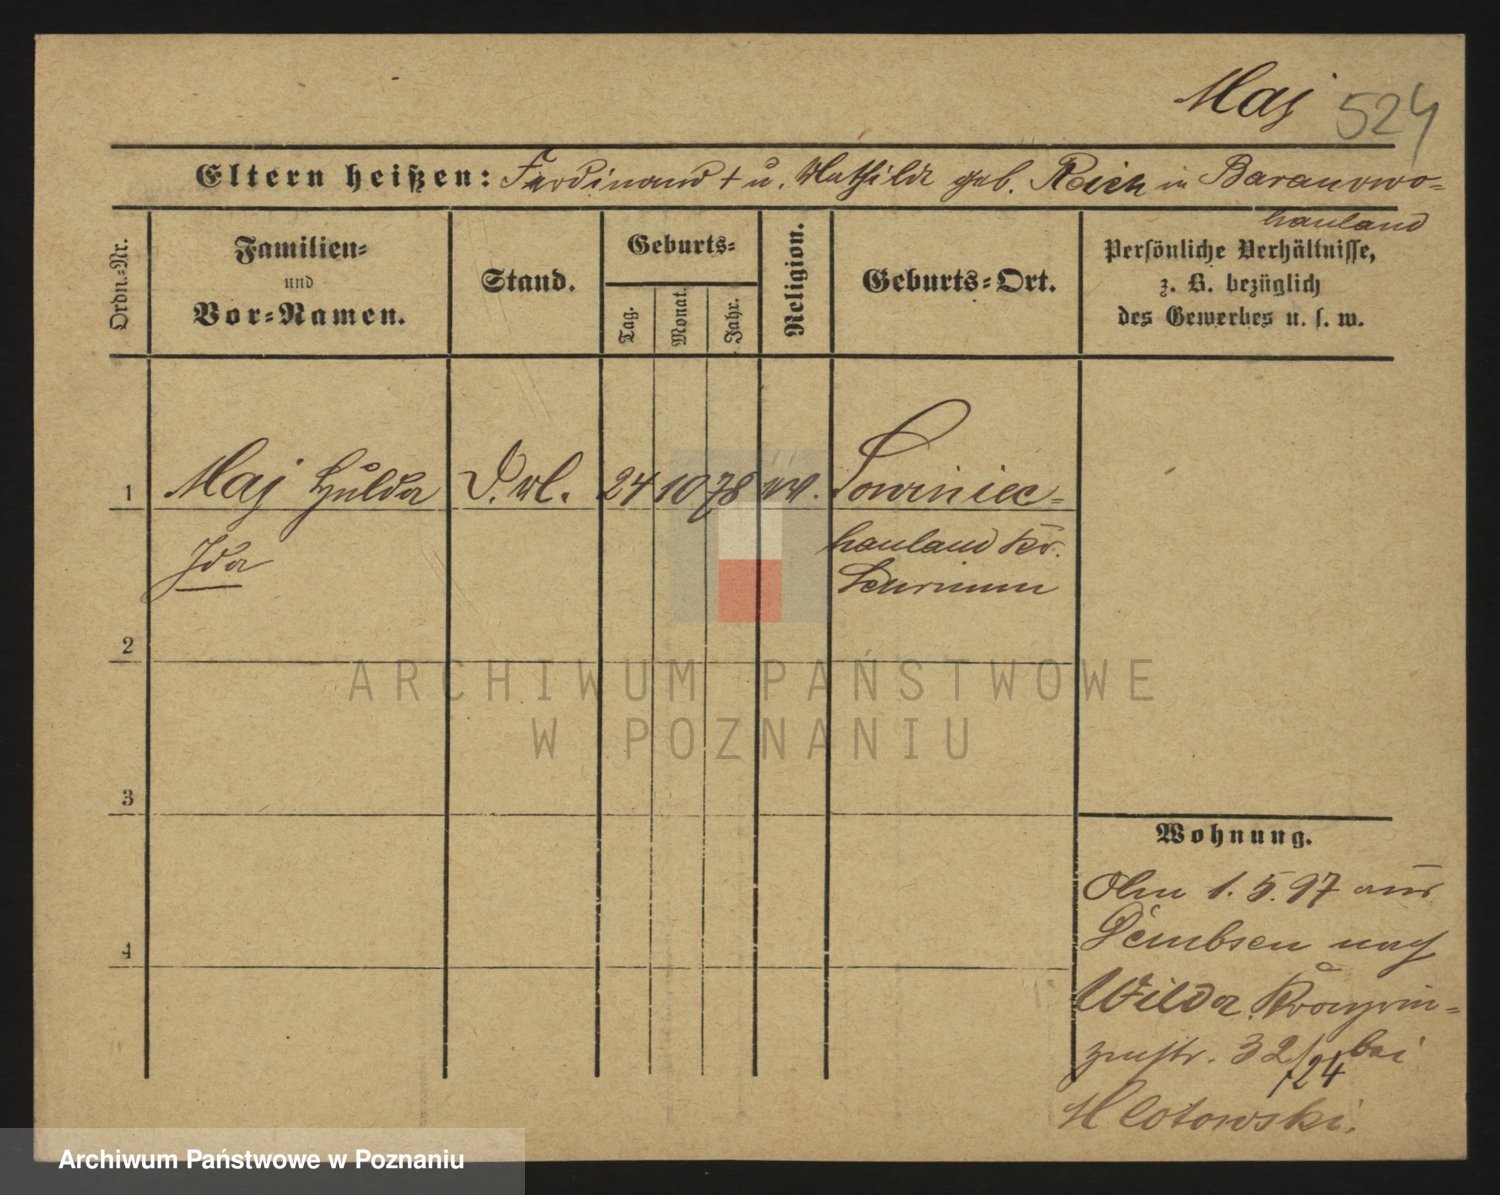 Maj 524
Eltern heißen: Ferdinand + u. Mathilde geb. Reich in Baranowo-
hauland
Ordn.-Nr.
Familien-
und
Vor-Namen.
Stand.
Geburts-
Tag.
Monat.
Jahr.
Religion.
Geburts-Ort.
Persönliche Verhältnisse,
z. B. bezüglich
des Gewerbes u. s. w.
1 Maj Hulda 24 10 78 ev. Sowiniec-
Ida
hauland Kr.
Schrimm
2
3
4
Wohnung.
1. 5. 97 aus
Dembsen nach
Wilda Kronprin-
zenstr. 32/24 bei
Klotowski.
ARCHIWUM PAŃSTWOWE
W POZNANIU
Archiwum Państwowe w Poznaniu